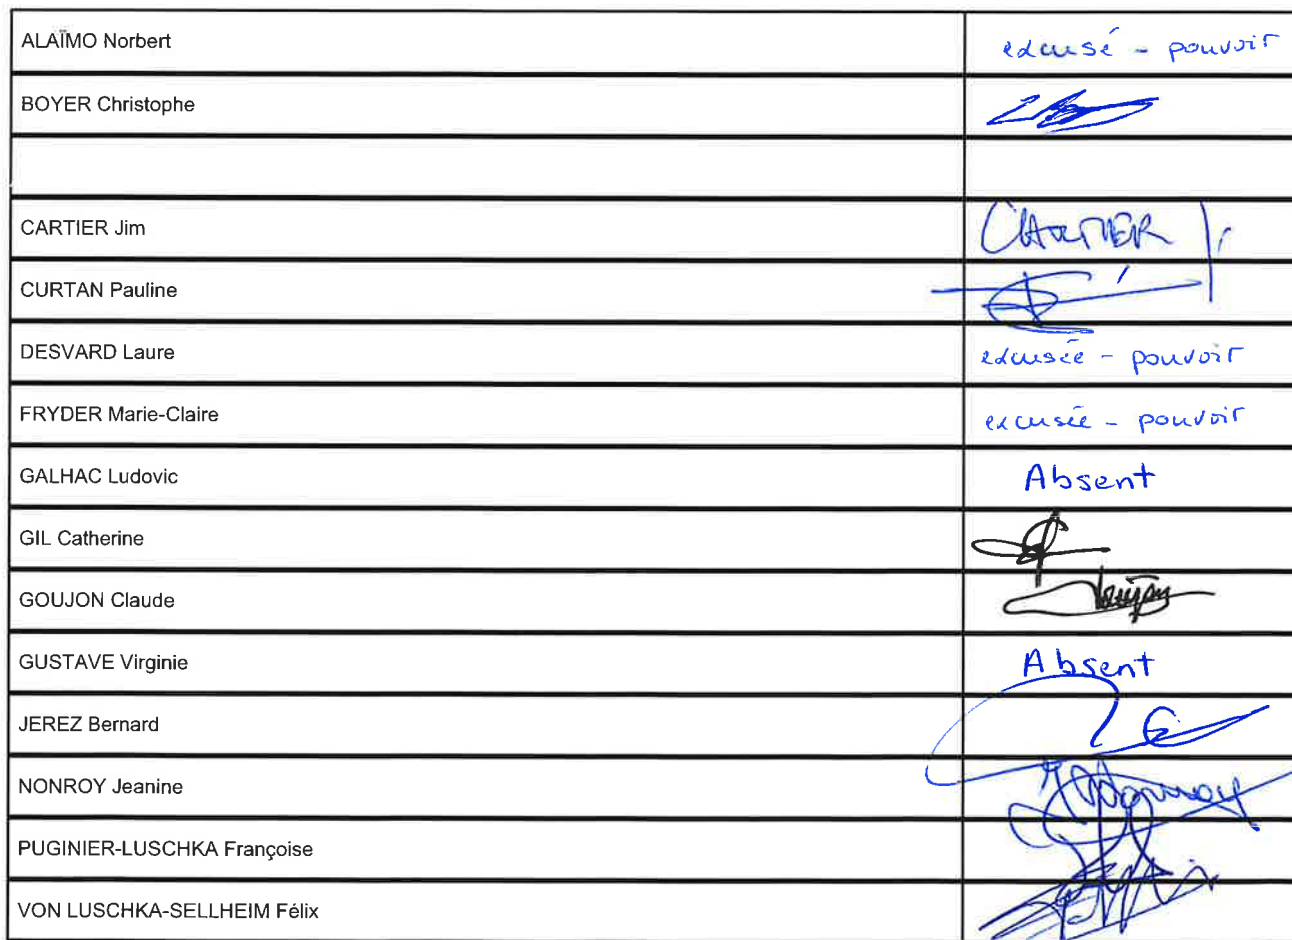 ALAÏMO Norbert excusé - pouvoir
BOYER Christophe
CARTIER Jim CARTIER J
CURTAN Pauline
DESVARD Laure excusée - pouvoir
FRYDER Marie-Claire excusée - pouvoir
GALHAC Ludovic Absent
GIL Catherine
GOUJON Claude
GUSTAVE Virginie Absent
JEREZ Bernard
NONROY Jeanine
PUGINIER-LUSCHKA Françoise
VON LUSCHKA-SELLHEIM Félix